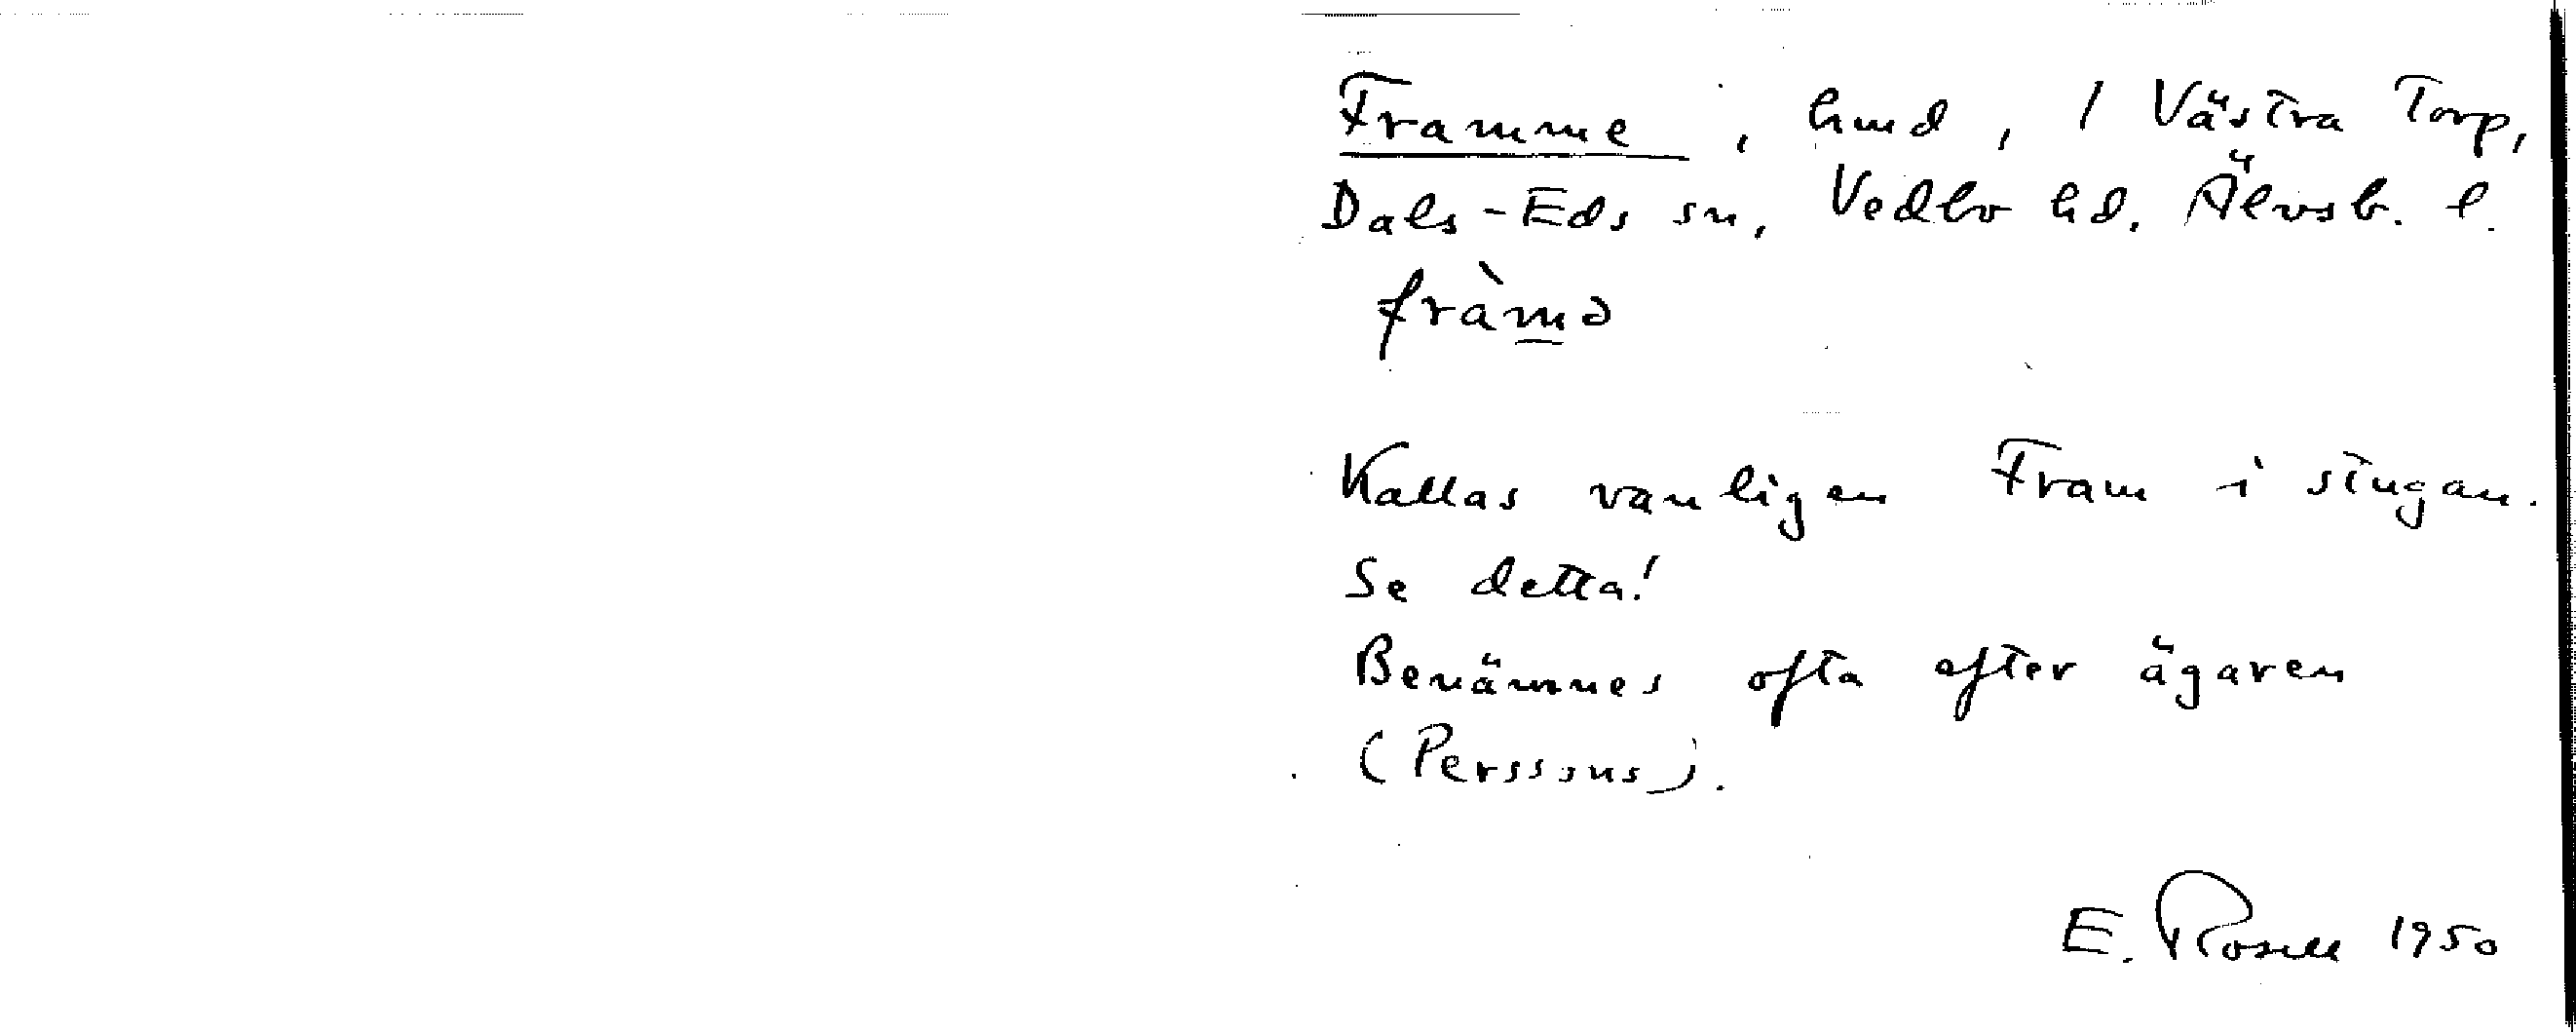 Framme, hmd, 1 Västra Torp,
Dals-Eds sn, Vedbo hd. Älvsb. l.
fràmə
Kallas vanligen Fram i stugan.
Se detta!
Benämnes ofta efter ägaren
(Perssons).
E. Rosell 1950